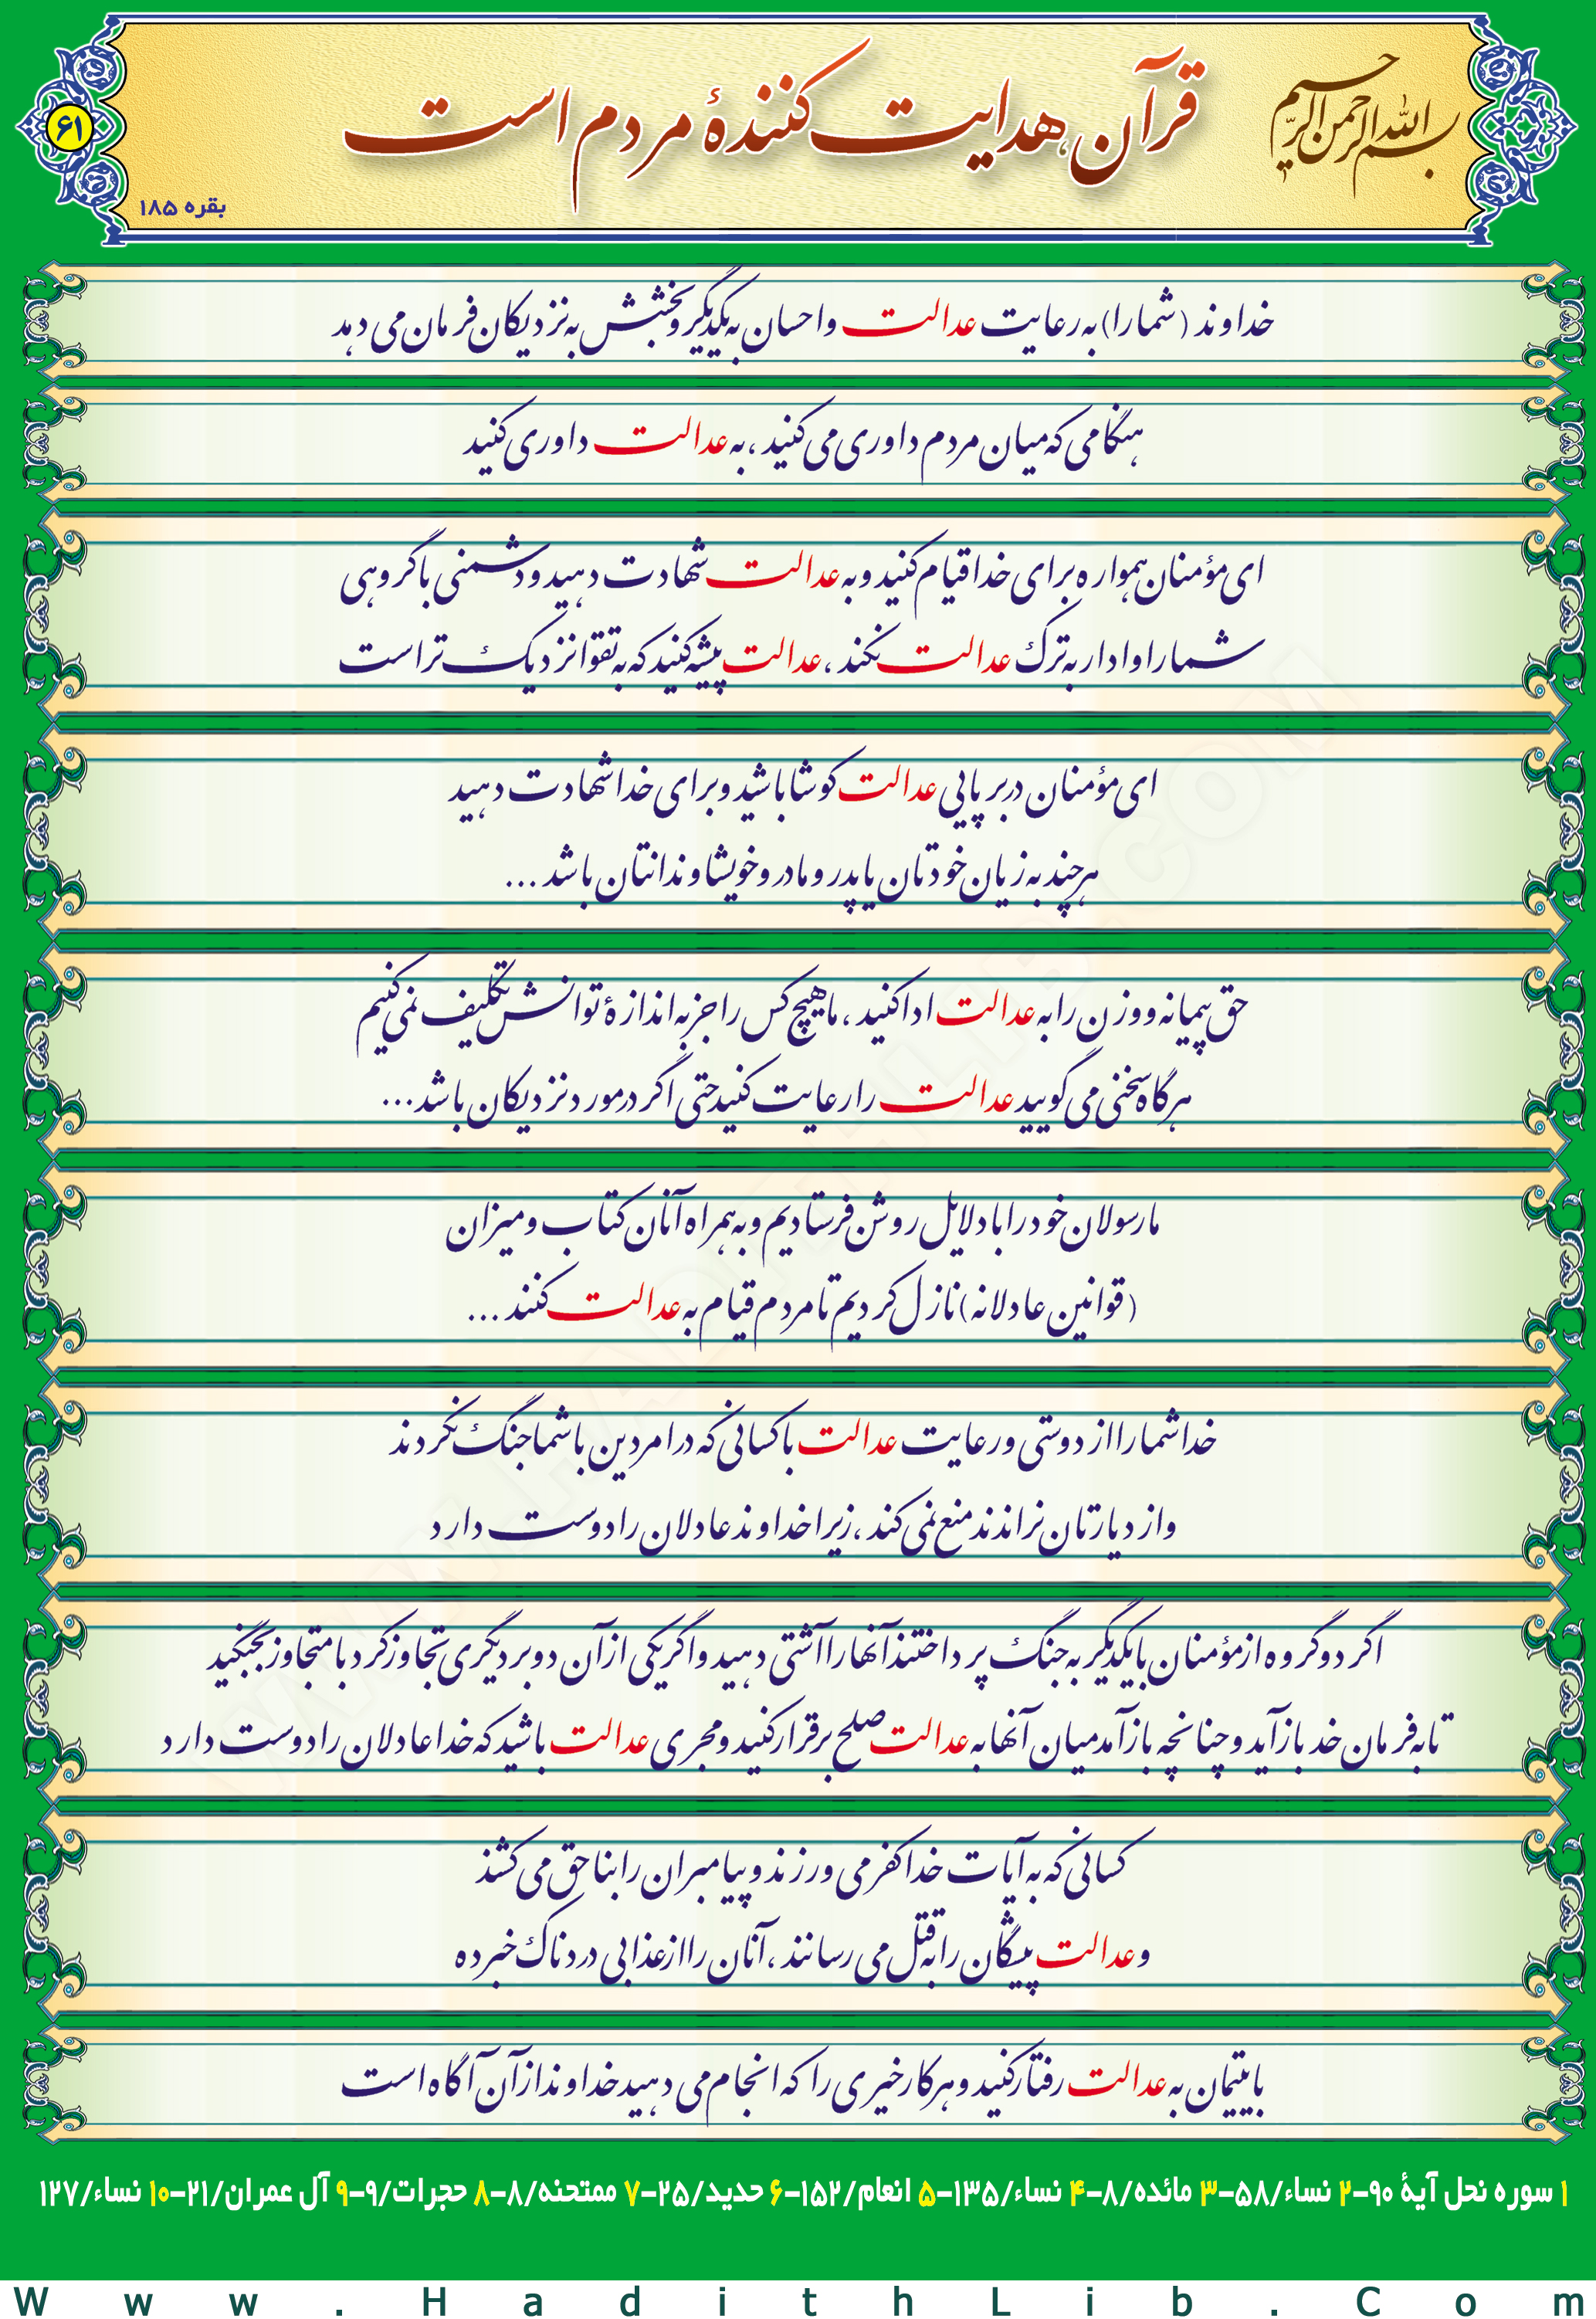 بسم الله الرحمن الرحیم
قرآن هدایت کنندهٔ مردم است
۶۱
بقره ۱۸۵
خداوند (شما را) به رعایت عدالت و احسان به یکدیگر و بخشش به نزدیکان فرمان می دهد
هنگامی که میان مردم داوری می کنید ، به عدالت داوری کنید
ای مؤمنان همواره برای خدا قیام کنید و به عدالت شهادت دهید و دشمنی با گروهی
شما را وادار به ترک عدالت نکند ، عدالت پیشه کنید که به تقوا نزدیک تر است
ای مؤمنان در برپایی عدالت کوشا باشید و برای خدا شهادت دهید
هرچند به زیان خودتان یا پدر و مادر و خویشاوندانتان باشد ...
حق پیمانه و وزن را به عدالت ادا کنید ، ما هیچ کس را جز به اندازهٔ توانش تکلیف نمی کنیم
هرگاه سخنی می گویید عدالت را رعایت کنید حتی اگر در مورد نزدیکان باشد ...
ما رسولان خود را با دلایل روشن فرستادیم و به همراه آنان کتاب و میزان
(قوانین عادلانه) نازل کردیم تا مردم قیام به عدالت کنند ...
خدا شما را از دوستی و رعایت عدالت با کسانی که در امر دین با شما جنگ نکردند
و از دیارتان نراندند منع نمی کند ، زیرا خداوند عادلان را دوست دارد
اگر دو گروه از مؤمنان با یکدیگر به جنگ پرداختند آنها را آشتی دهید و اگر یکی از آن دو بر دیگری تجاوز کرد با متجاوز بجنگید
تا به فرمان خد باز آید و چنانچه باز آمد میان آنها به عدالت صلح برقرار کنید و مجری عدالت باشید که خدا عادلان را دوست دارد
کسانی که به آیات خدا کفر می ورزند و پیامبران را بنا حق می کشند
و عدالت پیشگان را به قتل می رسانند ، آنان را از عذابی دردناک خبر ده
با یتیمان به عدالت رفتار کنید و هر کار خیری را که انجام می دهید خداوند از آن آگاه است
۱ سوره نحل آیهٔ ۹۰-۲ نساء/۵۸-۳ مائده/۸-۴ نساء/۱۳۵-۵ انعام/۱۵۲-۶ حدید/۲۵-۷ ممتحنه/۸-۸ حجرات/۹-۹ آل عمران/۲۱-۱۰ نساء/۱۲۷
Www.HadithLib.Com